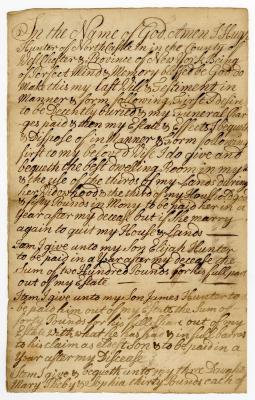 In the Name of God Amen I Hugh
Hunter of North Castle in in the County of
West Chester & Province of New York Being
of Perfect Mind & Memory Blessed be God Do
Make this my last Will & Testiment in
Manner & form following first I desire
to be Decently buried & my funeral Char
ges paid then my Estate & Effects I bequeth
& Dispose of in Manner & form following
first to my beloved Wife I do give and
bequeth the best dwelling Room in my
House the use of the thirds of my Lands during
her Widowhood & the third of my Household
& fifty Pounds in Mony to be paid her in a
year after my decease but if she marry
again to quit my House & Lands
Itam I give unto my Son Elijah Hunter
to be paid in a year after my decease the
Sum of two Hundred Pounds for his full part
out of my Estate
Itam I give unto my Son James Hunter to
be paid him out of my Estate the Sum of
Pounds for his full Shair out of my
Estate with what he has had & in full barr
to his claim as eldest Son & to be paid in a
Year after my Decease
Itam I give & bequeth unto my three Daughters
Mary Pheby & Sophia thirty Pounds each of